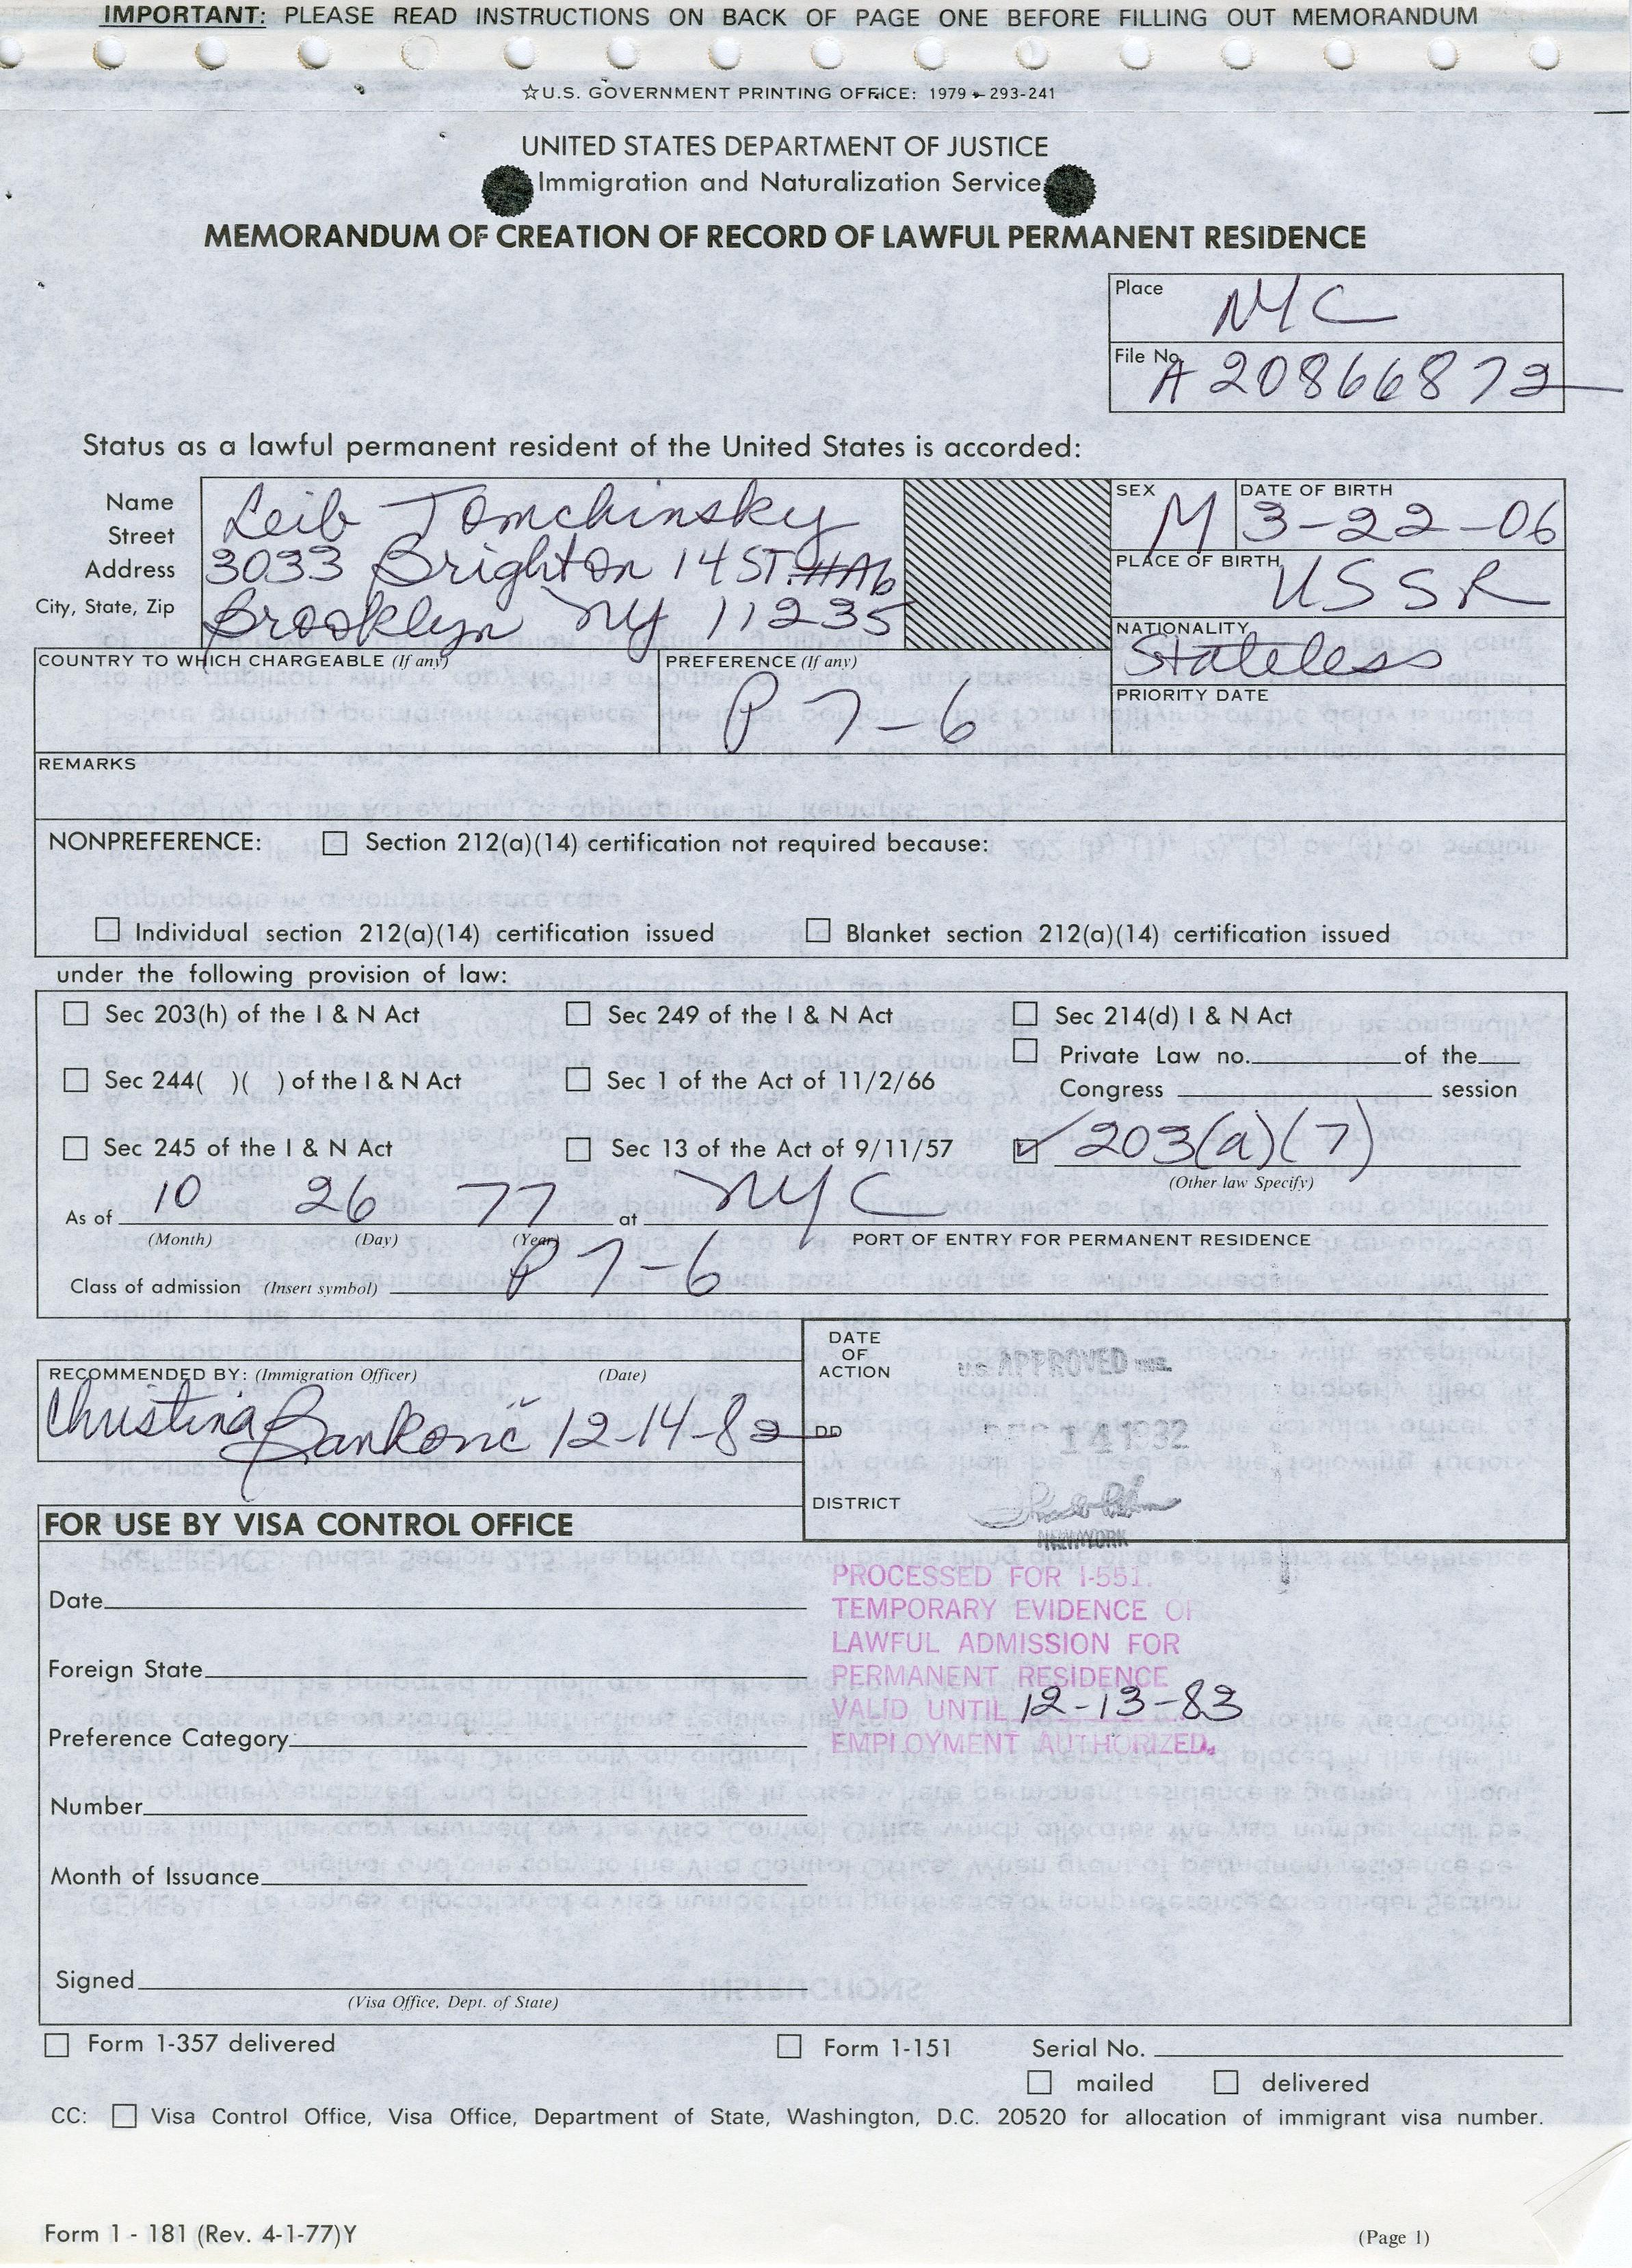 IMPORTANT: PLEASE READ INSTRUCTIONS ON BACK OF PAGE ONE BEFORE FILLING OUT MEMORANDUM
☆U.S. GOVERNMENT PRINTING OFFICE: 1979 - 293-241
UNITED STATES DEPARTMENT OF JUSTICE
Immigration and Naturalization Service
MEMORANDUM OF CREATION OF RECORD OF LAWFUL PERMANENT RESIDENCE
Place NYC
File No. A20866872
Status as a lawful permanent resident of the United States is accorded:
Name Leib Tomchinsky
Street Address 3033 Brighton 14 ST. #A6
City, State, Zip Brooklyn NY 11235
SEX M
DATE OF BIRTH 3-22-06
PLACE OF BIRTH USSR
NATIONALITY Stateless
COUNTRY TO WHICH CHARGEABLE (If any)
PREFERENCE (If any) P7-6
PRIORITY DATE
REMARKS
NONPREFERENCE: ☐ Section 212(a)(14) certification not required because:
☐ Individual section 212(a)(14) certification issued ☐ Blanket section 212(a)(14) certification issued
under the following provision of law:
☐ Sec 203(h) of the I & N Act ☐ Sec 249 of the I & N Act ☐ Sec 214(d) I & N Act
☐ Private Law no. of the
☐ Sec 244( )( ) of the I & N Act ☐ Sec 1 of the Act of 11/2/66 Congress session
☐ Sec 245 of the I & N Act ☐ Sec 13 of the Act of 9/11/57 ☑ 203(a)(7)
(Other law Specify)
As of 10 26 77 at NYC
(Month) (Day) (Year) PORT OF ENTRY FOR PERMANENT RESIDENCE
Class of admission (Insert symbol) P7-6
RECOMMENDED BY: (Immigration Officer) (Date)
Christina Banković 12-14-82
DATE OF ACTION
APPROVED
DD
14 1982
DISTRICT
NEW YORK
FOR USE BY VISA CONTROL OFFICE
PROCESSED FOR I-551.
TEMPORARY EVIDENCE OF
LAWFUL ADMISSION FOR
PERMANENT RESIDENCE
VALID UNTIL 12-13-83
EMPLOYMENT AUTHORIZED.
Date
Foreign State
Preference Category
Number
Month of Issuance
Signed
(Visa Office, Dept. of State)
☐ Form 1-357 delivered ☐ Form 1-151 Serial No.
☐ mailed ☐ delivered
CC: ☐ Visa Control Office, Visa Office, Department of State, Washington, D.C. 20520 for allocation of immigrant visa number.
Form 1 - 181 (Rev. 4-1-77)Y
(Page 1)